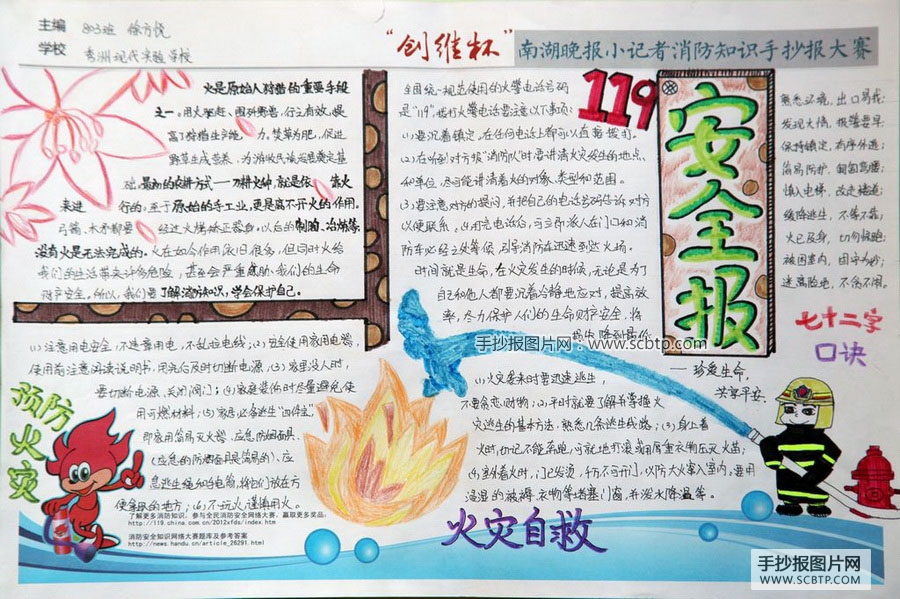 主编 803班 徐方悦
学校 秀洲现代实验学校
“创维杯”
南湖晚报小记者消防知识手抄报大赛
火是原始人狩猎的重要手段
之一。用火驱赶、围歼野兽，行之有效，提
高了狩猎生产能力。焚草为肥，促进
野草生长
最初的农耕方式——刀耕火种，就是依靠火
来进行的。至于原始的手工业，更是离不开火的作用。
弓箭、木矛都要经过火烤矫正器身。以后的制陶、冶炼等，
没有火是无法完成的。火在如今作用依旧很多，但同时火给
我们的生活带来许多危险，甚至会严重威胁我们的生命
财产安全。所以，我们要了解消防知识，学会保护自己。
全国统一规范使用的火警电话号码
是“119”，拨打火警电话要注意以下事项：
(1)要沉着镇定，在任何电话上都可以直接拨打。
(2)在听到对方报“消防队”时要讲清火灾发生的地点
和单位，尽可能讲清着火的对象、类型和范围。
(3)要注意对方的提问，并把自己的电话号码告诉对方
以便联系。(4)打完电话后，可立即派人在门口和消
防车必经之处等候，引导消防车迅速到达火场。
时间就是生命，在火灾发生的时候，无论是为了
自己和他人都要沉着冷静地应对，提高效
率，尽力保护人们的生命财产安全，将
119
安全报
熟悉环境，出口易找；
发现火情，报警要早；
保持镇定，有序外逃；
简易防护，匍匐弯腰；
慎入电梯，改走楼道；
缓降逃生，不等不靠；
火已及身，切勿惊跑；
被困室内，固守为妙；
远离险地，不贪不闹。
七十二字
口诀
——珍爱生命，
共享平安
手抄报图片网：www.scbtp.com
(1)注意用电安全，不违章用电，不乱拉电线；(2)安全使用家用电器，
使用前注意阅读说明书，用完后及时切断电源；(3)家里没人时，
要切断电源、关闭阀门；(4)家庭装修时尽量避免使
用可燃材料；(5)家居必备逃生“四件宝”，
即家用简易灭火器、应急防烟面具、
(应急的防烟面具是简易的)、应
急逃生绳和手电筒，将它们放在方
便拿取的地方；(6)不玩火谨慎用火。
预防
火灾
(1)火灾袭来时要迅速逃生，
不要贪恋财物；(2)平时就要了解与掌握火
灾逃生的基本方法，熟悉几条逃生路线；(3)身上着
火时，切记不能奔跑，可就地打滚或用厚重衣物压灭火苗；
(4)室外着火时，门已发烫，千万不可开门，以防大火窜入室内，要用
浸湿的被褥、衣物等堵塞门窗，并泼水降温等。
火灾自救
了解更多消防知识，参与全民消防安全网络大赛，赢取更多奖品：
http://119.china.com.cn/2012xfds/index.htm
消防安全知识网络大赛题库及参考答案
http://news.handu.cn/article_26291.html
手抄报图片网
WWW.SCBTP.COM